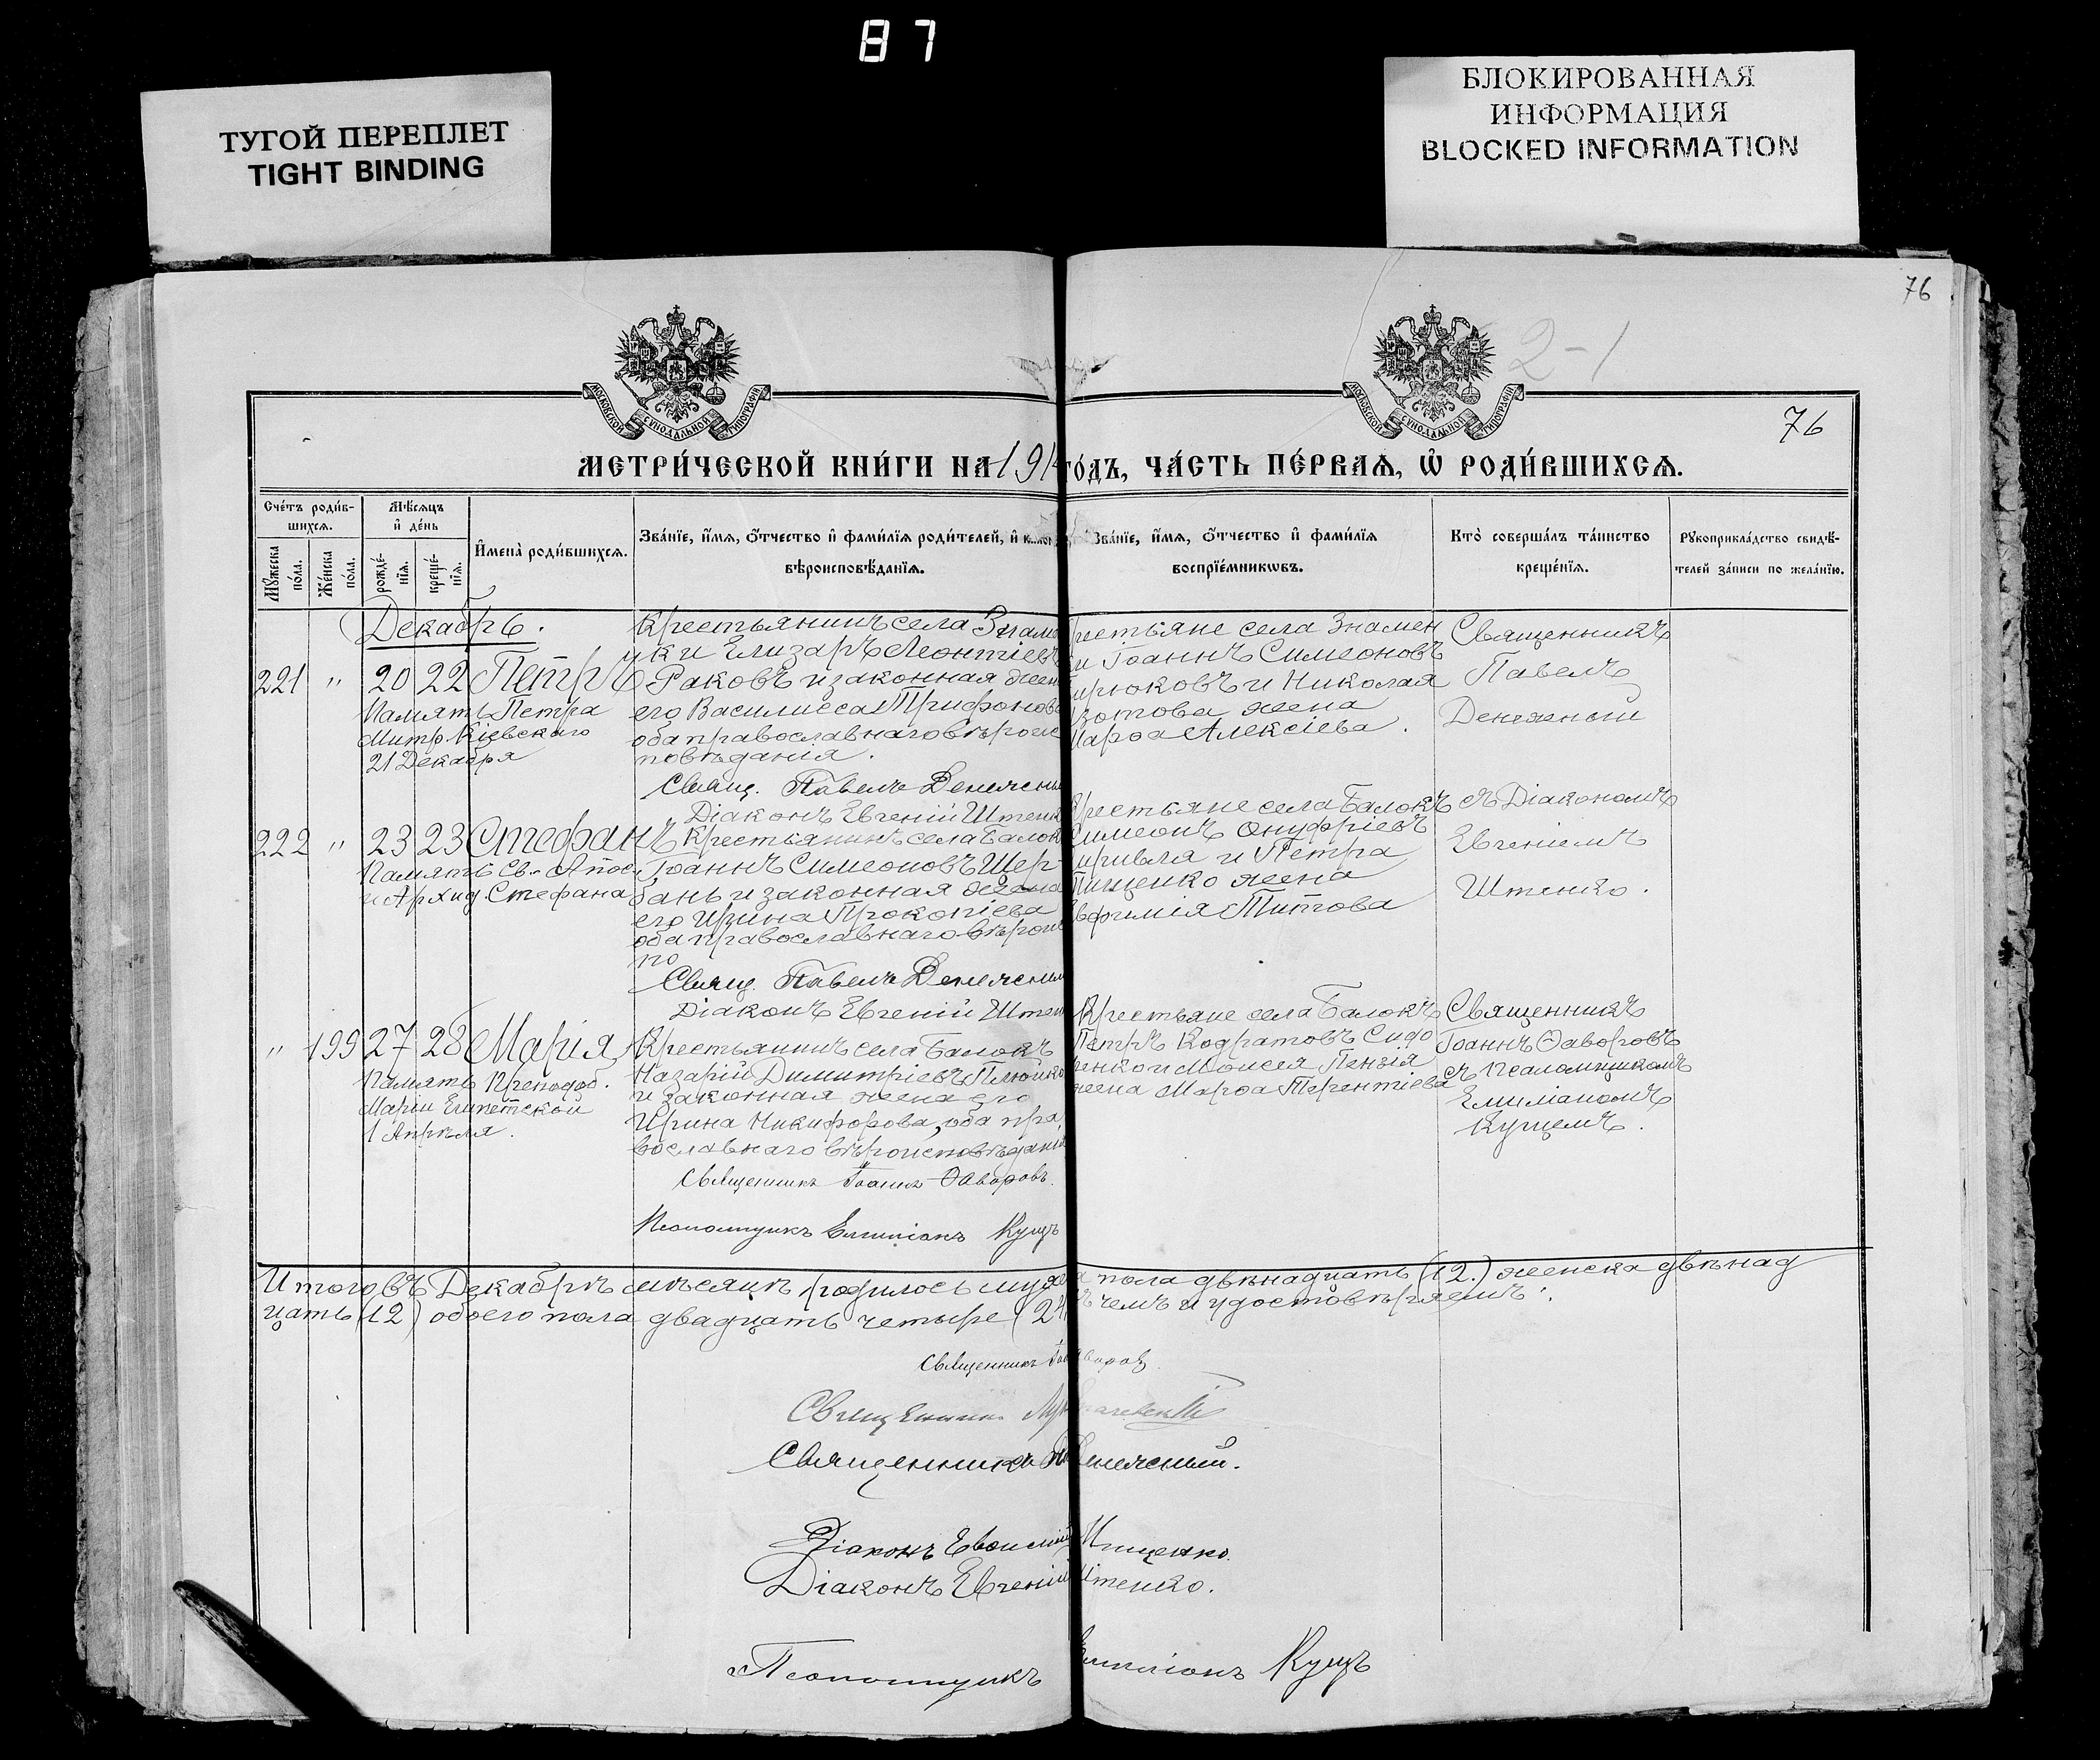 87
ТУГОЙ ПЕРЕПЛЕТ
TIGHT BINDING
БЛОКИРОВАННАЯ
ИНФОРМАЦИЯ
BLOCKED INFORMATION
76
2-1
76
МОСКОВСКОЙ СУНОДАЛЬНОЙ ТИПОГРАФІИ
МОСКОВСКОЙ СУНОДАЛЬНОЙ ТИПОГРАФІИ
МЕТРИ́ЧЕСКОЙ КНИ́ГИ НА 191
ГО́ДЪ, ЧА́СТЬ ПЕ́РВАѦ, Ѡ҆ РОДИ́ВШИХСѦ.
Сче́тъ роди́в-
шихсѧ.
Мѣ́сѧцъ
и҆ де́нь
Мꙋ́жеска
по́ла.
Же́нска
по́ла.
рожде́-
нїѧ.
креще́-
нїѧ.
И҆мена̀ роди́вшихсѧ.
Зва́нїе, и҆́мѧ, ѻ҆́тчество и҆ фами́лїѧ роди́телей, и҆
вѣроисповѣ́данїѧ.
Зва́нїе, и҆́мѧ, ѻ҆́тчество и҆ фами́лїѧ
воспрїе́мникѡвъ.
Кто̀ соверша́лъ та́инство
креще́нїѧ.
Рꙋкоприкла́дство свидѣ́-
телей за́писи по жела́нїю.
Декабрь.
221 " 20 22 Петръ
Память Петра
Митр. Кіевскаго
21 Декабря
Крестьянинъ села Знаме
ки Елизаръ Леонтіевъ
Раковъ и законная жен
его Василисса Трифонова
оба православнаго вѣроис
повѣданія.
Свящ. Павелъ Денежны
Діаконъ Евгеній Штен
рестьяне села Знамен
и Іоаннъ Симеоновъ
ирюковъ и Николая
Изотова жена
Марѳа Алексіева.
Священникъ
Павелъ
Денежный
222 " 23 23 Стефанъ
Память Св. Апос.
и Архид. Стефана
Крестьянинъ села Балок
Іоаннъ Симеоновъ Щер-
бань и законная жена
его Ирина Прокопіева
оба православнаго вѣроис
по
Свящ. Павелъ Денежны
Діаконъ Евгеній Штен
Крестьяне села Балокъ
Симеонъ Онуфріевъ
и Петра
Пищенко жена
Евфимія Титова
съ Діакономъ
Евгеніемъ
Штенко.
" 199 27 28 Марія
Память Преподоб.
Маріи Египетской
1 Апрѣля.
Крестьянинъ села Балокъ
Назарій Димитріевъ
и законная жена его
Ирина Никифорова, оба пра
вославнаго вѣроисповѣданія
Священникъ Іоаннъ Ѳаворовъ.
Псаломщикъ Емиліанъ Кущъ
Крестьяне села Балокъ
Петръ Кодратовъ Сидо
ренко и Моисея Пензія
жена Марѳа Терентіева
Священникъ
Іоаннъ Ѳаворовъ
съ Псаломщикомъ
Емиліаномъ
Кущемъ.
Итого въ Декабрѣ мѣсяцѣ родилось муже пола двѣнадцать (12.) женска двѣнад
цать (12) обоего пола двадцать четыре (24 чемъ и удостовѣряемъ.
Священникъ Іоа воровъ
Священникъ
Священникъ Па Денежный.
Діаконъ Евѳимій Ищенко.
Діаконъ Евгеній Штенко.
Псаломщикъ Емиліанъ Кущъ